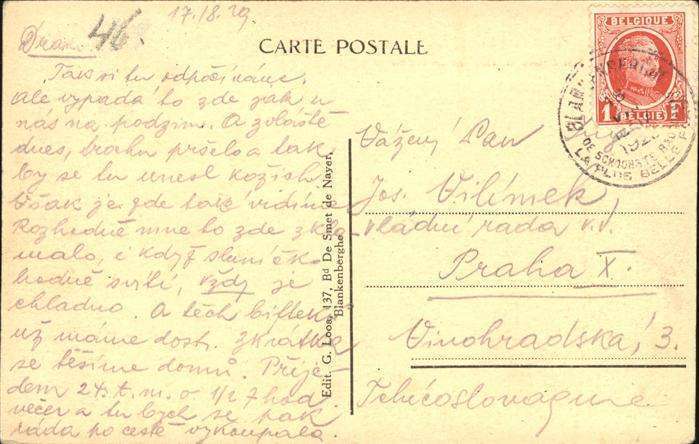 17./8. 29
46.
CARTE POSTALE
BELGIQUE
1 F
BELGIË
BLANKENBERGHE
DE SCHOONSTE
LA PLUS BELLE
Tak si tu odpočíváme.
Ale vypadá to zde jak u
nás na podzim. A zvláště
dnes, trochu pršelo a tak
by se tu unesl kožich.
Však je zde také vidíme.
Rozhodně mne to zde zkla-
malo, i když sluníčk
hodně svítí, vždy je
chladno. A těch biftek
už máme dost. Zkrátka
se těšíme domů. Přije-
dem 24. t. m. o 1/2 7 hod
večer a tu bych se pak
ráda po cestě vykoupala.
Edit. G. Loos, 137, Bd De Smet de Nayer,
Blankenberghe
Vážený Pan
Jos. Vilímek,
vládní rada v.v.
Praha X.
Vinohradská, 3.
Tchécoslovaquie